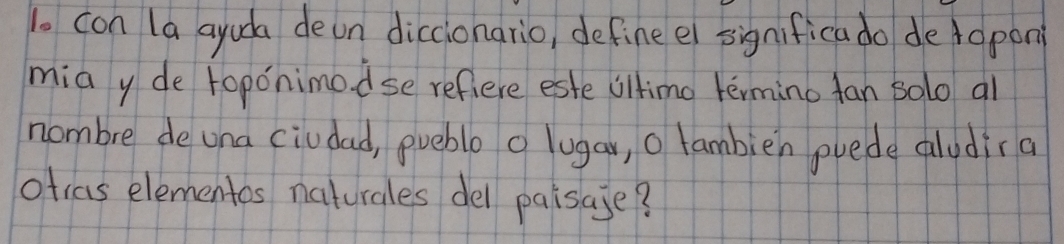 1. con la ayuda de un diccionario, define el significado de toponi
mia y de topónimo. ¿se refiere este último término tan solo al
nombre de una ciudad, pueblo o lugar, o tambien puede aludir a
otras elementos naturales del paisaje?